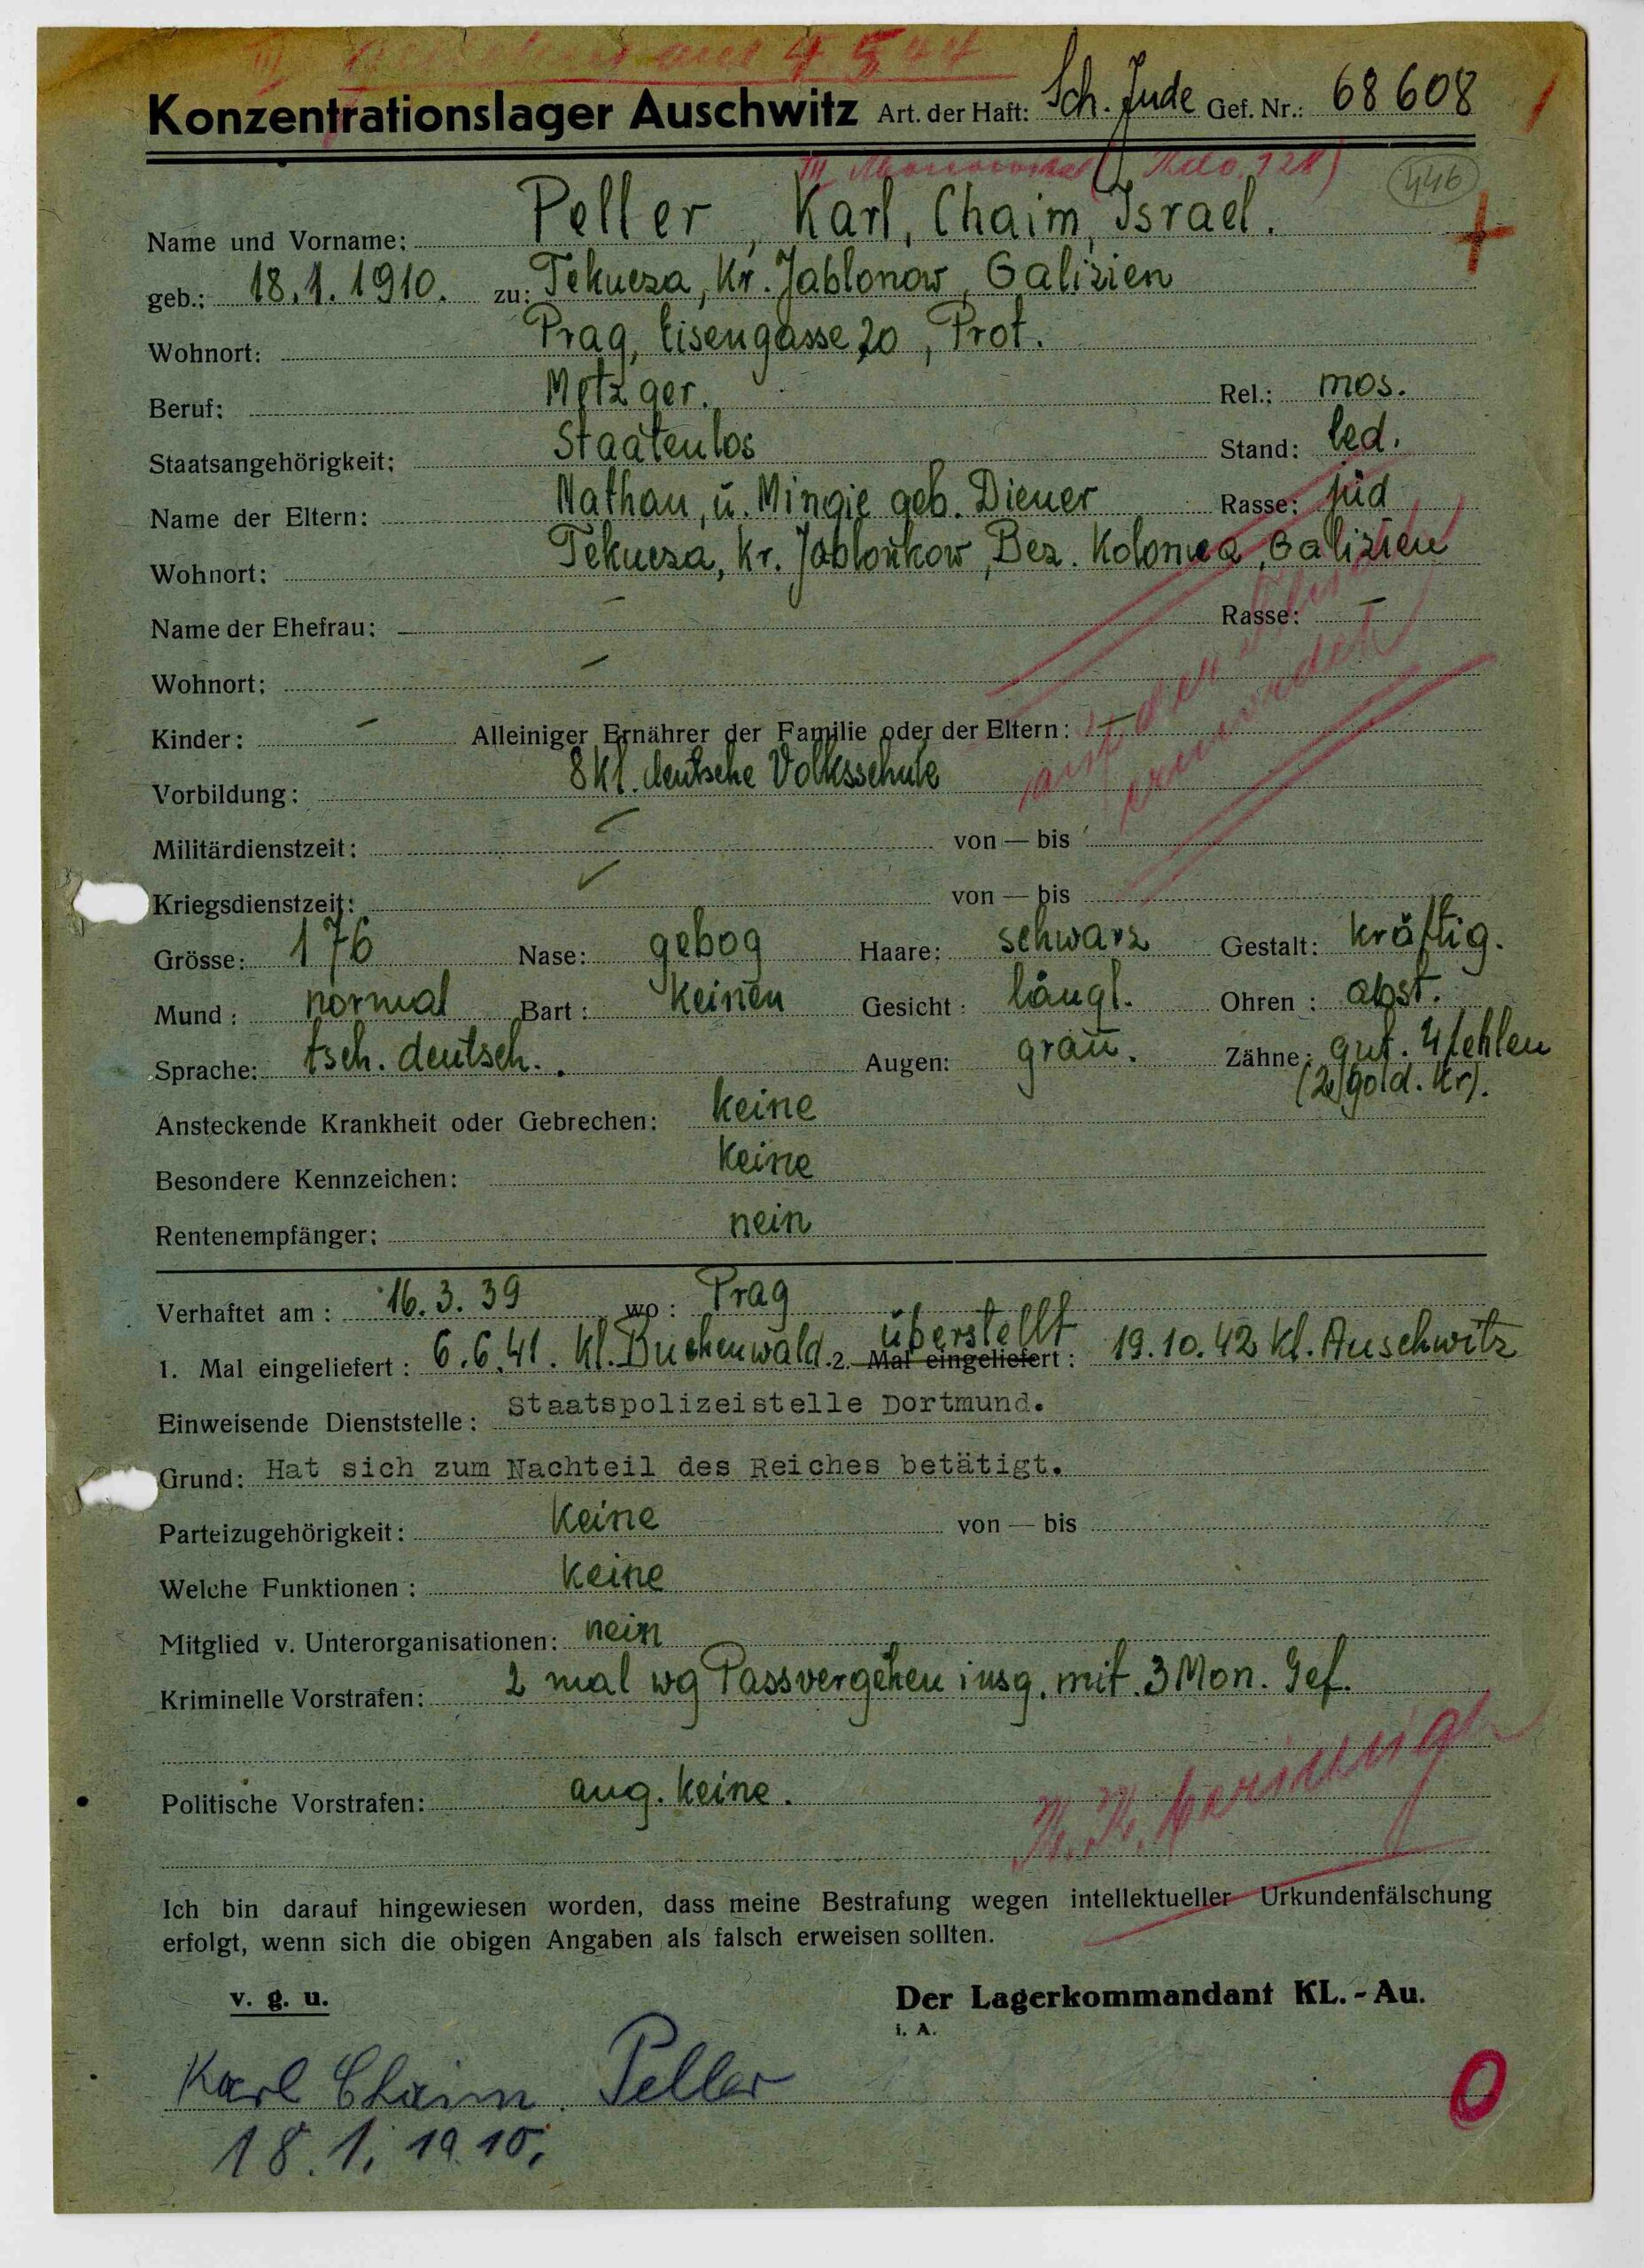 III gesehen am 4 5 44
Konzentrationslager Auschwitz Art. der Haft: Sch. Jude Gef. Nr.: 68608
III Monowitz (Kdo. 121)
446
Name und Vorname: Peller, Karl, Chaim, Israel.
geb.: 18.1.1910. zu: Tekucza, Kr. Jablonow, Galizien
Wohnort: Prag, Eisengasse 20, Prot.
Beruf: Metzger. Rel.: mos.
Staatsangehörigkeit: Staatenlos Stand: led.
Name der Eltern: Nathan, u. Mingie geb. Diener Rasse: jüd
Wohnort: Tekucza, Kr. Jablonkow, Bez. Kolomea, Galizien
Name der Ehefrau: – Rasse: –
Wohnort: –
Kinder: – Alleiniger Ernährer der Familie oder der Eltern: –
Vorbildung: 8 Kl. deutsche Volksschule
aus der
Militärdienstzeit: – von — bis
Kriegsdienstzeit: von — bis
Grösse: 176 Nase: gebog Haare: schwarz Gestalt: kräftig.
Mund: normal Bart: keinen Gesicht: längl. Ohren: abst.
Sprache: tsch. deutsch. Augen: grau. Zähne: gut. 4 fehlen
(2 gold. Kr).
Ansteckende Krankheit oder Gebrechen: keine
Besondere Kennzeichen: keine
Rentenempfänger: nein
Verhaftet am: 16.3.39 wo: Prag
1. Mal eingeliefert: 6.6.41. Kl. Buchenwald. 2. Mal eingeliefert: überstellt 19.10.42 Kl. Auschwitz
Einweisende Dienststelle: Staatspolizeistelle Dortmund.
Grund: Hat sich zum Nachteil des Reiches betätigt.
Parteizugehörigkeit: keine von — bis
Welche Funktionen: keine
Mitglied v. Unterorganisationen: nein
Kriminelle Vorstrafen: 2 mal wg Passvergehen insg. mit 3 Mon. Gef.
Politische Vorstrafen: ang. keine.
Ich bin darauf hingewiesen worden, dass meine Bestrafung wegen intellektueller Urkundenfälschung
erfolgt, wenn sich die obigen Angaben als falsch erweisen sollten.
v. g. u. Der Lagerkommandant KL.-Au.
i. A.
Karl Chaim Peller
18.1.1910.